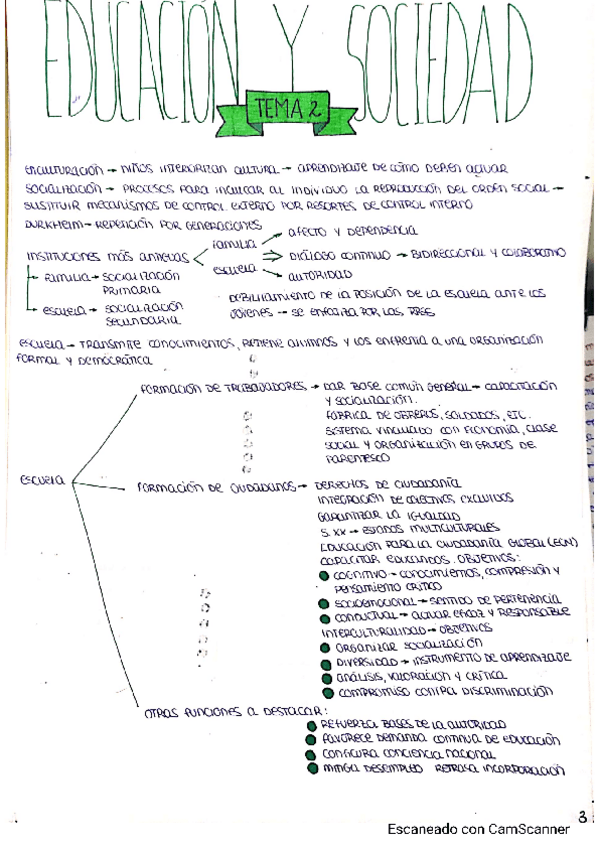 EDUCACIÓN Y SOCIEDAD
TEMA 2
ENCULTURACIÓN → NIÑOS INTERIORIZAN CULTURA → APRENDIZAJE DE CÓMO DEBEN ACTUAR
SOCIALIZACIÓN → PROCESOS PARA INCULCAR AL INDIVIDUO LA REPRODUCCIÓN DEL ORDEN SOCIAL →
SUSTITUIR MECANISMOS DE CONTROL EXTERNO POR RESORTES DE CONTROL INTERNO
DURKHEIM → REPETICIÓN POR GENERACIONES
INSTITUCIONES MÁS ANTIGUAS
FAMILIA
AFECTO Y DEPENDENCIA
DIÁLOGO CONTINUO → BIDIRECCIONAL Y COLABORATIVO
ESCUELA
AUTORIDAD
FAMILIA → SOCIALIZACIÓN
PRIMARIA
ESCUELA → SOCIALIZACIÓN
SECUNDARIA
DEBILITAMIENTO DE LA POSICIÓN DE LA ESCUELA ANTE LOS
JÓVENES → SE ENFATIZA POR LAS RRSS
ESCUELA → TRANSMITE CONOCIMIENTOS, RETIENE ALUMNOS Y LOS ENFRENTA A UNA ORGANIZACIÓN
FORMAL Y DEMOCRÁTICA
ESCUELA
FORMACIÓN DE TRABAJADORES → DAR BASE COMÚN GENERAL → CAPACITACIÓN
Y SOCIALIZACIÓN.
FÁBRICA DE OBREROS, SOLDADOS, ETC.
SISTEMA VINCULADO CON ECONOMÍA, CLASE
SOCIAL Y ORGANIZACIÓN EN GRUPOS DE
PARENTESCO
FORMACIÓN DE CIUDADANOS → DERECHOS DE CIUDADANÍA
INTEGRACIÓN DE COLECTIVOS EXCLUIDOS
GARANTIZAR LA IGUALDAD
S. XX → ESTADOS MULTICULTURALES
EDUCACIÓN PARA LA CIUDADANÍA GLOBAL (ECM)
CAPACITAR EDUCANDOS. OBJETIVOS:
COGNITIVO → CONOCIMIENTOS, COMPRESIÓN Y
PENSAMIENTO CRÍTICO
SOCIOEMOCIONAL → SENTIDO DE PERTENENCIA
CONDUCTUAL → ACTUAR EFICAZ Y RESPONSABLE
INTERCULTURALIDAD → OBJETIVOS
ORGANIZAR SOCIALIZACIÓN
DIVERSIDAD → INSTRUMENTO DE APRENDIZAJE
ANÁLISIS, VALORACIÓN Y CRÍTICA
COMPROMISO CONTRA DISCRIMINACIÓN
OTRAS FUNCIONES A DESTACAR:
REFUERZA BASES DE LA AUTORIDAD
FAVORECE DEMANDA CONTINUA DE EDUCACIÓN
CONFIGURA CONCIENCIA NACIONAL
MITIGA DESEMPLEO RETRASA INCORPORACIÓN
3
Escaneado con CamScanner